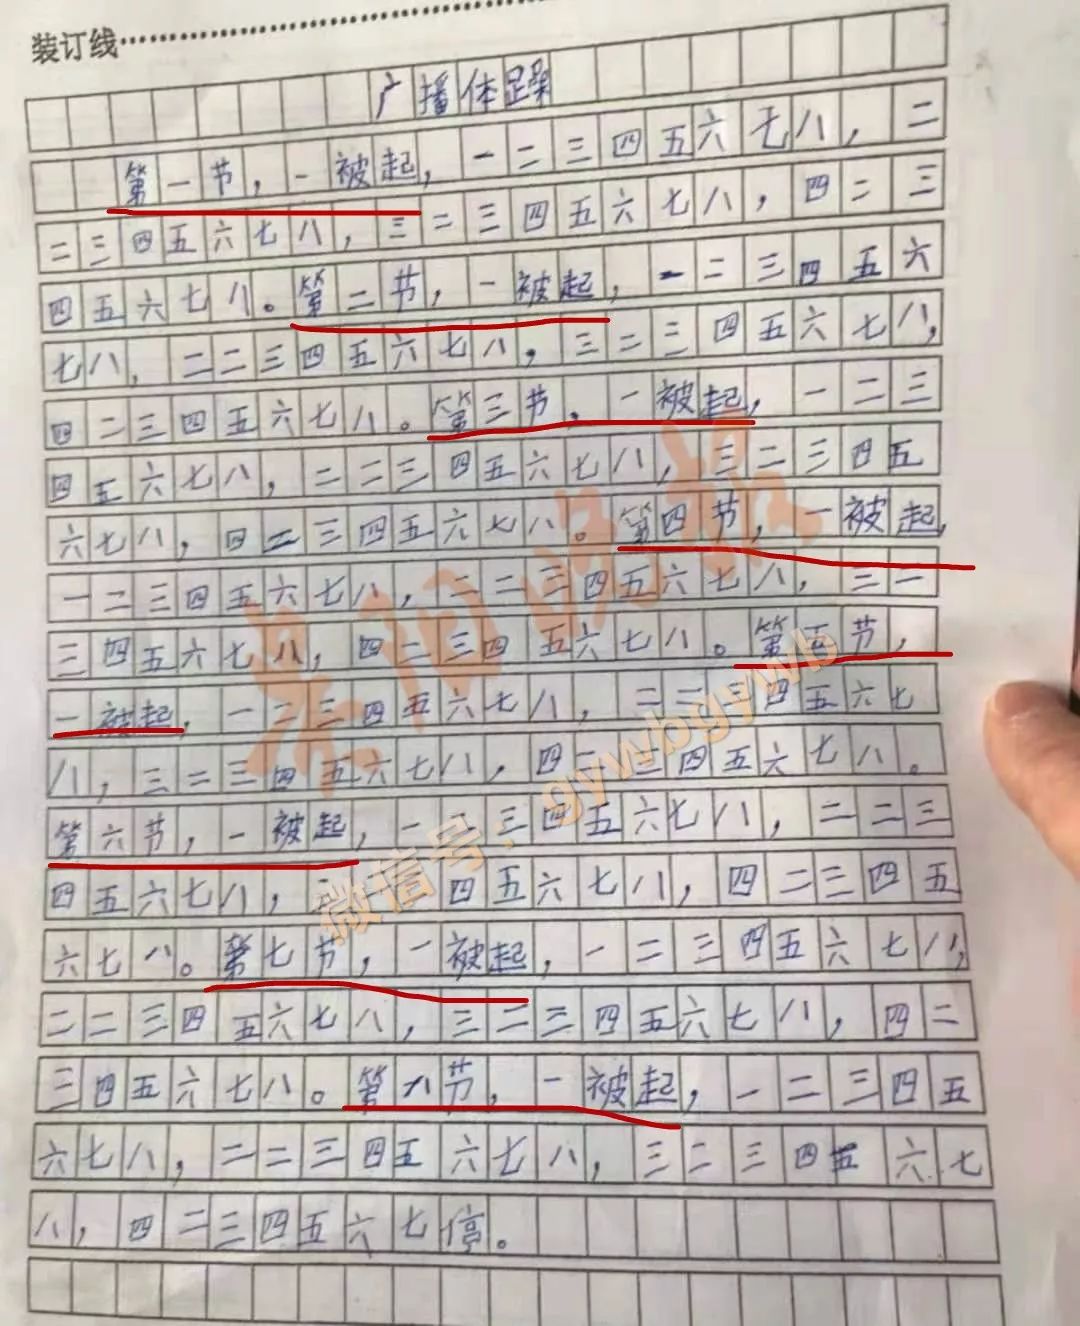 装订线
广播体躁
第一节，一被起，一二三四五六七八，二
二三四五六七八，三二三四五六七八，四二三
四五六七八。第二节，一被起，一二三四五六
七八，二二三四五六七八，三二三四五六七八，
四二三四五六七八。第三节，一被起，一二三
四五六七八，二二三四五六七八，三二三四五
六七八，四二三四五六七八。第四节，一被起，
一二三四五六七八，二二三四五六七八，三二
三四五六七八，四二三四五六七八。第五节，
一被起，一二三四五六七八，二二三四五六七
八，三二三四五六七八，四二三四五六七八。
第六节，一被起，一二三四五六七八，二二三
四五六七八，三二三四五六七八，四二三四五
六七八。第七节，一被起，一二三四五六七八，
二二三四五六七八，三二三四五六七八，四二
三四五六七八。第八节，一被起，一二三四五
六七八，二二三四五六七八，三二三四五六七
八，四二三四五六七停。
微信号：gywbgywb